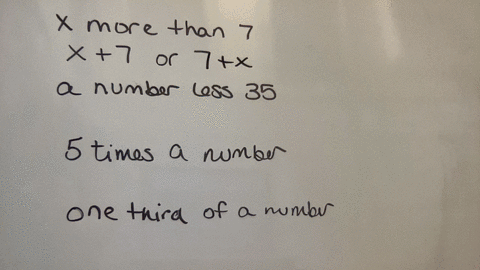 x more than 7
x + 7 or 7 + x
a number less 35
5 times a number
one third of a number